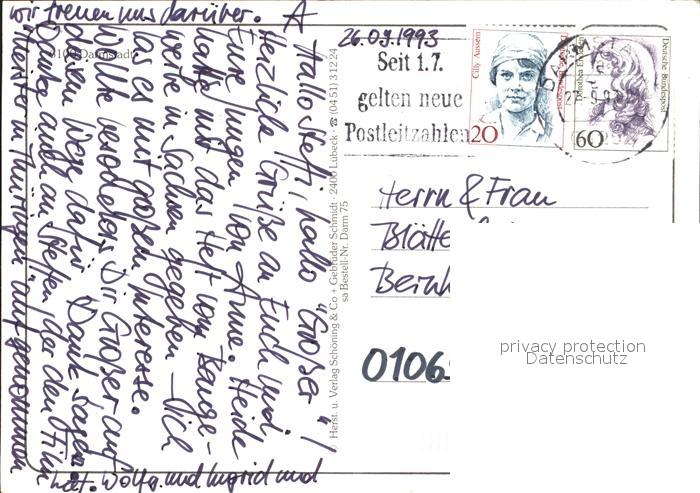 wir freuen uns darüber. A
26.09.1993
6100 Darmstadt
Hallo Steffi, hallo "Großer"!
Herzliche Grüße an Euch und
Eure Jungen von Anne. Heide
hatte mir das Heft vom Bauge-
werbe in Sachsen gegeben - ich
las es mit großem Interesse.
Wollte besonders Dir Großer auf
diesem Wege dafür Dank sagen.
Danke auch an Steffen, der den Film
Herzl. Wolfg. und Ingrid und
Herst. u. Verlag Schöning & Co + Gebrüder Schmidt · 2400 Lübeck · ☎ (04 51) 3 12 24
sa Bestell-Nr. Darm 75
Seit 1.7.
gelten neue
Postleitzahlen
Cilly Aussem
Deutsche Bundespost
20
Dorothea Erxleben
Deutsche Bundespost
60
Herrn & Frau
Blätte
Bernh
0106
privacy protection
Datenschutz